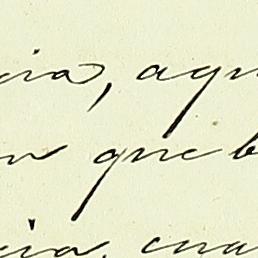 cia, aqu
n que b
cia, cua